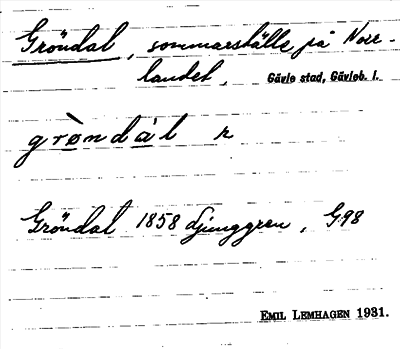 Gröndal, sommarställe på Norr-
landet, Gävle stad, Gävleb. l.
grøndal n
Gröndal 1858 Ljunggren, G98
EMIL LEMHAGEN 1931.